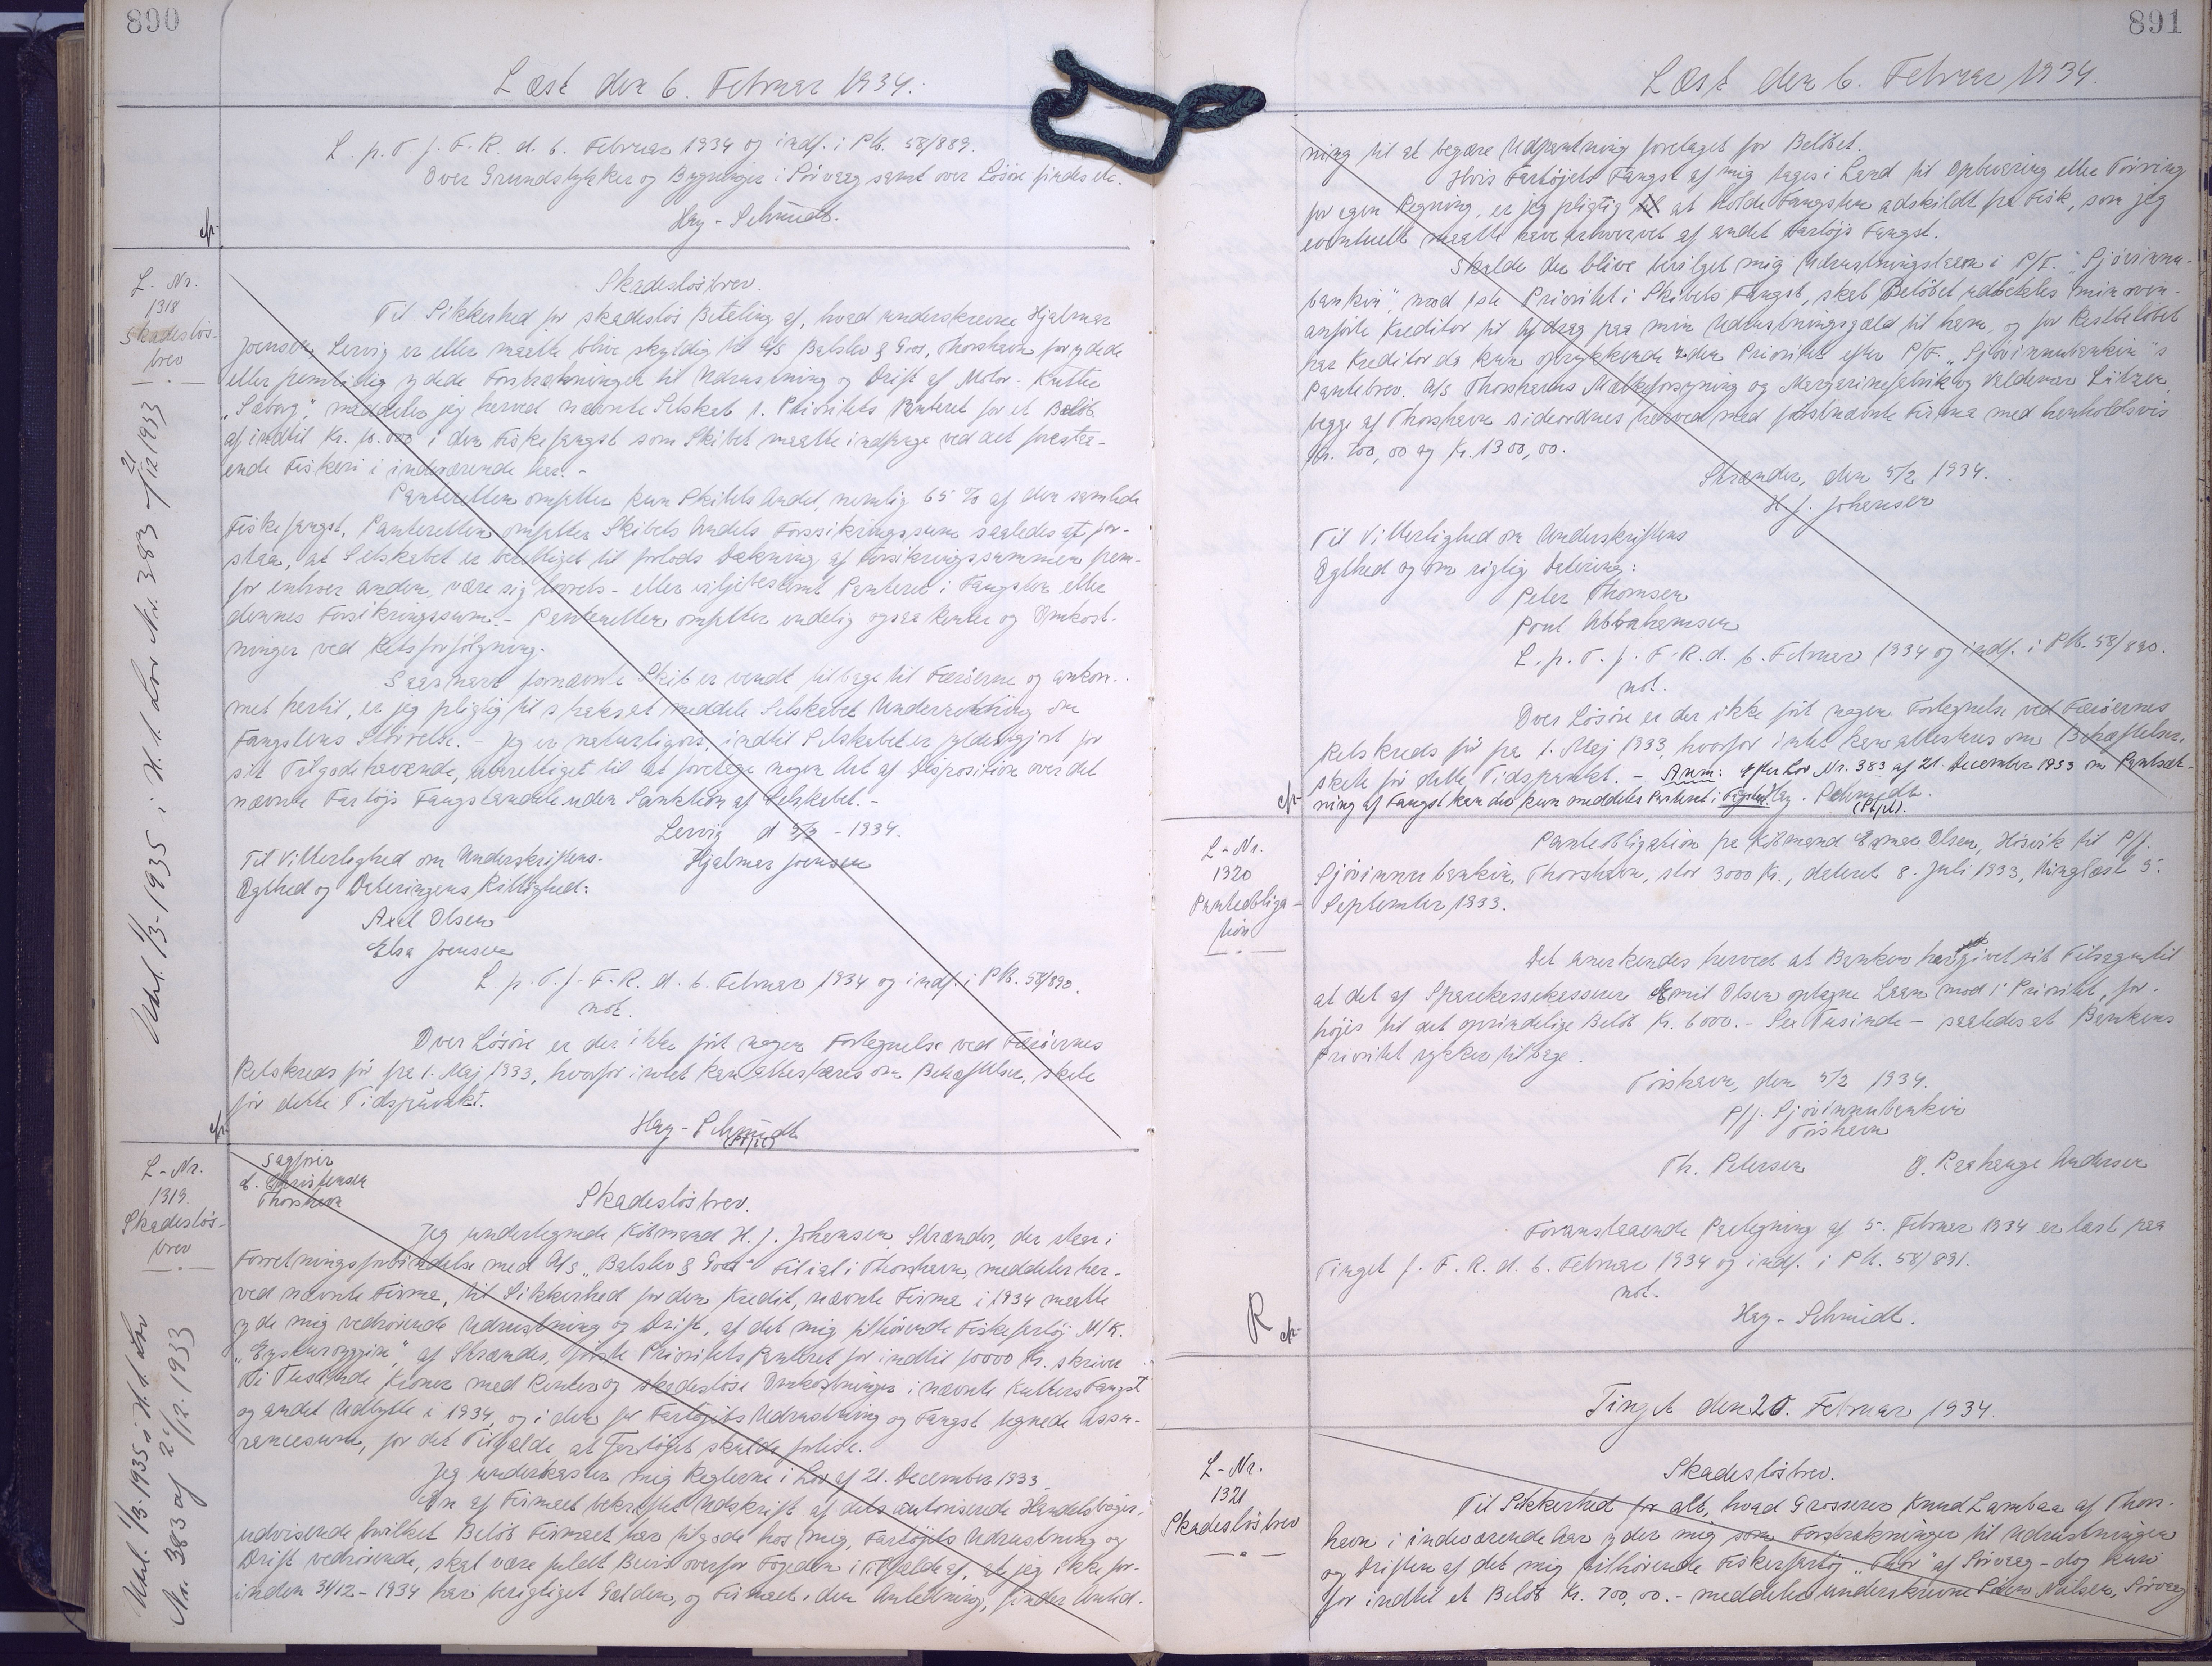 890
Læst den 6. Februar 1934.
L. p. T. f. F. R. d. 6. Februar 1934 og indf. i Pb. 58/889.
Over Grundstykker og Bygninger i Sörvaag samt over Lösöre findes etc.
Hey-Schmidt.
cfr.
L. Nr.
1318
Skadeslös-
brev
Udsl. 1/3-1935 i H. t. Lov Nr. 383 af 21/12 1933
Skadeslösbrev.
Til Sikkerhed for skadeslös Betaling af, hvad underskrevne Hjalmar
Joensen, Lervig er eller maatte blive skyldig til A/S Balslev & Groes, Thorshavn for ydede
eller fremtidig ydede Forstrækninger til Udrustning og Drift af Motor-Kutter
"Søborg", meddeler jeg herved nævnte Selskab 1. Prioritets Panteret for et Belöb
af indtil Kr. 10.000 i den Fiskefangst som Skibet maatte indfange ved det foresta-
ende Fiskeri i indeværende Aar.-
Panteretten omfatter kun Skibets Andel, nemlig 65 % af den samlede
Fiskefangst, Panteretten omfatter Skibets Andels Forssikringssum saaledes at for-
staa, at Selskabet er berettiget til forlods Dækning af Forsikringssummen frem-
for enhver anden, være sig lovets- eller viljebestemt Panteret i Fangsten eller
dennes Forsikringssum.- Panteretten omfatter endelig ogsaa Renter og Omkost-
ninger ved Retsforfölgning.
Saasnart fornævnte Skib er vendt tilbage til Færöerne og ankom-
met hertil, er jeg pligtig til straks at meddele Selskabet Underretning om
Fangstens Störrelse.- Jeg er naturligvis, indtil Selskabet er fyldestgjort for
sit Tilgodehavende, uberettiget til at foretage nogen Art af Disposition over det
nævnte Fartöjs Fangstandele uden Sanktion af Selskabet.-
Lervig d 5/2 - 1934.
Til Vitterlighed om Underskriftens- Hjalmar Joensen
Ægthed og Dateringens Rigtighed:
Axel Olsen
Elsa Joensen
L. p. T. f. F. R. d. 6. Februar 1934 og indf. i Pb. 58/890.
not.
Over Lösöre er der ikke fört nogen Fortegnelse ved Færöernes
Retskreds för fra 1. Maj 1933, hvorfor intet kan attesteres om Behæftelser, skete
för dette Tidspunkt.
Hey-Schmidt
cfr.
L-Nr.
1319.
Skadeslös-
brev
Udsl. 1/3-1935 i H. t. Lov
Nr. 383 af 21/12. 1933
Sagförer
C. Christensen
Thorshavn
Skadeslösbrev.
Jeg undertegnede Köbmand H. J. Johansen, Strænder, der staar i
Forretningsforbindelse med A/S "Balslev & Groes" Filial i Thorshavn, meddeler her-
ved nævnte Firma, til Sikkerhed for den Kredit, nævnte Firma i 1934 maatte
yde mig vedrörende Udrustning og Drift, af det mig tilhörende Fiskefartöj M/K.
"Eysturoyggin", af Strænder, förste Prioritets Panteret for indtil 10000 Kr. skriver
Ti Tusinde Kroner med Renter og skadeslöse Omkostninger i nævnte Kutters Fangst
og andet Udbytte i 1934, og i den for Fartöjets Udrustning og Fangst tegnede Assu-
rancesum, for det Tilfælde at Fartöjet skulde forlise.
Jeg underkaster mig Reglerne i Lov af 21. December 1933
En af Firmaet bekræftet Udskrift af dets autoriserede Handelsböger,
udvisende hvilket Belöb Firmaet har tilgode hos mig, Fartöjets Udrustning og
Drift vedrörende, skal være fuldt Bevis overfor Fogeden i Tilfælde af, at jeg ikke for-
inden 31/12-1934 har berigtiget Gælden, og Firmaet i den Anledning, finder Anled-
891
Læst den 6. Februar 1934.
ning til at begære Udpantning foretaget for Belöbet.
Hvis Fartöjets Fangst af mig tages i Land til Opbevaring eller Törring
for egen Regning, er jeg pligtig til at holde Fangsten adskildt fra Fisk, som jeg
eventuelt maatte have erhvervet af andet Fartöjs Fangst.
Skulde der blive bevilget mig Udrustningslaan i P/F. "Sjóvinnu-
bankin", mod 1ste Prioritet i Skibets Fangst, skal Belöbet udbetales min oven-
anförte Kreditor til Afdrag paa min Udrustningsgæld til ham, og for Restbelöbet
har Kreditor da kun oprykkende 2den Prioritet efter P/F. "Sjóvinnubankin"s
Pantebrev. A/S Thorshavns Mælkeforsyning og Margarinefabrik og Valdemar Lützen,
begge af Thorshavn sideordnes herved med förstnævnte Firma med henholdsvis
Kr. 700,00 og Kr. 1300,00.
Strænder, den 5/2 1934.
H. J. Johansen
Til Vitterlighed om Underskriftens
Ægthed og om rigtig Datering:
Peter Thomsen
Poul Abrahamsen
L. p. T. f. F. R. d. 6. Februar 1934 og indf. i Pb. 58/890.
not.
Over Lösöre er der ikke fört nogen Fortegnelse ved Færöernes
Retskreds för fra 1. Maj 1933, hvorfor intet kan attesteres om Behæftelser,
skete för dette Tidspunkt. - Anm: Efter Lov Nr. 383 af 21. December 1933 om Pantsæt-
ning af Fangst kan der kun meddeles Panteret i Fangsten. Hey-Schmidt.
cfr.
L-Nr.
1320
Panteobliga-
tion
Panteobligation fra Köbmand Ejnar Olsen, Hósvík til P/f.
Sjóvinnubankin, Thorshavn, stor 3000 Kr., dateret 8. Juli 1933, tinglæst 5.
September 1933.
Det anerkendes herved at Banken har givet sit Tilsagn til
at det af Sparekassekasserer Emil Olsen optagne Laan mod 1' Prioritet, for-
höjes til det oprindelige Belöb Kr. 6000.- Sex Tusinde - saaledes at Bankens
Prioritet rykker tilbage.
Tórshavn, den 5/2 1934.
P/f. Sjóvinnubankin
Tórshavn
Th. Petersen
Andersen
Foranstaaende Paategning af 5. Februar 1934 er læst paa
Tinget f. F. R. d. 6. Februar 1934 og indf. i Pb. 58/891.
not.
Hey-Schmidt.
R cfr.
Tinget den 20. Februar 1934.
L-Nr.
1321
Skadeslösbrev
Skadeslösbrev.
Til Sikkerhed for alt, hvad Grosserer Knud Lambaa af Thors-
havn i indeværende Aar yder mig som Forstrækninger til Udrustningen
og Driften af det mig tilhörende Fiskerfartöj "Thor" af Sörvaag - dog kun
for indtil et Belöb Kr. 700,00.- meddeler underskrevne Nielsen, Sörvaag